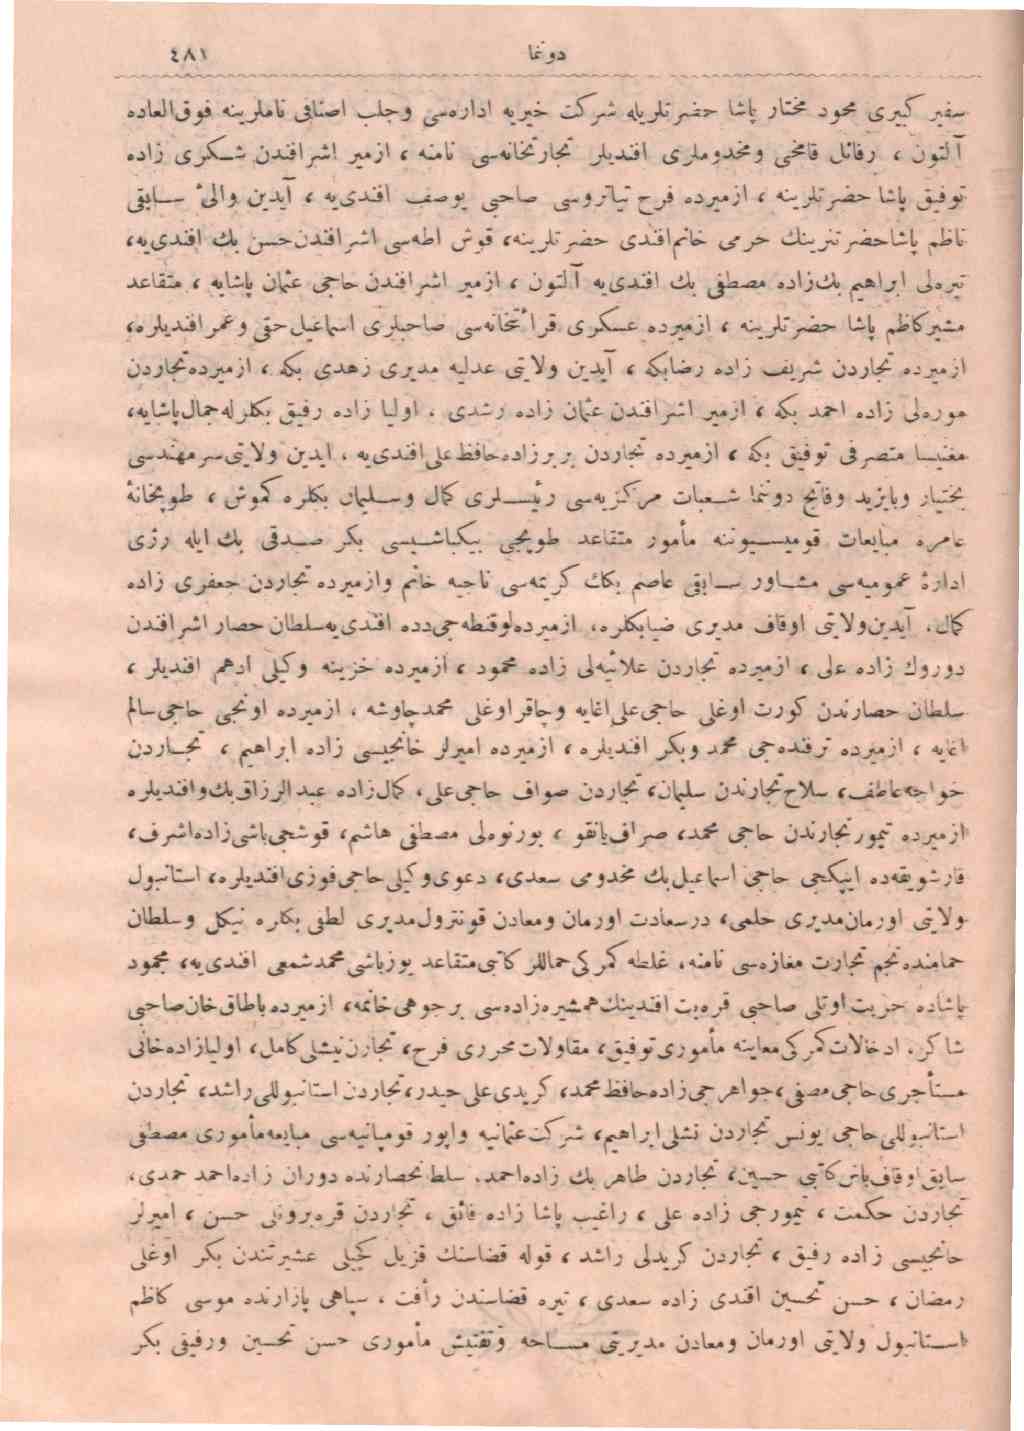 دوغا ٤٨١
سفیر كبیری محمود مختار پاشا حضرتلریله شركت خیریه اداره‌سی وجلب اصنافی ناملرینه فوق‌العاده
آلتون ، رفائل قامخی ومخدوملری افندیلر تجارتخانه‌سی نامنه ، ازمیر اشرافندن شـكری زاده
توفیق پاشا حضرتلرینه ، ازمیرده فرح تیاتروسی صاحبی یوصف افندی‌یه ، آیدین والیٔ سـابقی
ناظم پاشاحضرتنرینك حرمی خانم‌افندی حضرتلرینه، قوش اطه‌سی اشرافندن‌حسن بك افندی‌یه،
تیره‌لی ابراهیم بك‌زاده مصطفی بك افندی‌یه آلتون ، ازمیر اشرافندن حاجی عثمان پاشایه ، متقاعد
مشیر كاظم پاشا حضرتلرینه ، ازمیرده عسكری قرأتخانه‌سی صاحبلری اسماعیل‌حقی وعمر افندیلره،
ازمیرده تجاردن شریف زاده رضابكه ، آیدین ولایتی عدلیه مدیری زهدی بكه ، ازمیرده‌تجاردن
موره‌لی زاده احمد بكه ، ازمیر اشرافندن عثمان زاده رشدی ، اولیا زاده رفیق بكلرله‌جمال‌پاشایه،
مغنیسا متصرفی توفیق بكه ، ازمیرده تجاردن بربرزاده‌حافظ‌علی‌افندی‌یه ، ایدین ولایتی‌سرمهندسی
بختیار وبایزید وفاتح دوننما شـعبات مركزیه‌سی رئیسـلری كمال وسـلیمان بكلره كموش ، طوپخانهٔ
عامره مبایعات قومیسـیوننه مأمور متقاعد طوپجی بیكباشـیسی بكر صـدقی بك ایله رژی
ادارهٔ عمومیه‌سی مشـاور سـابقی عاصم بكك كریمه‌سی ناجیه خانم وازمیرده تجاردن جعفری زاده
كمال، آیدین‌ولایتی اوقاف مدیری ضیابكلره، ازمیرده‌لوقنطه‌جی‌دده افندی‌یه‌سلطان حصار اشرافندن
دوروك زاده علی ، ازمیرده تجاردن علائیه‌لی زاده محمود ، ازمیرده خزینه وكیلی ادهم افندیلر ،
سلطان حصارندن كورت اوغلی حاجی‌علی‌اغایه وچاقراوغلی محمدچاوشه ، ازمیرده اونجی حاجی‌سالم
اغایه ، ازمیرده ترقنده‌جی محمد وبكر افندیلره ، ازمیرده امیرلر خانجیسی زاده ابراهیم ، تجـاردن
خواجه‌عاطف، سلاح‌تجارندن سلیمان، تجاردن صواف حاجی‌علی، كمال‌زاده عبدالرزاق‌بك‌وافندیلره
ازمیرده تیمورتجارندن حاجی محمد، صراف‌یانقو ، بورنوه‌لی مصطفی هاشم، قوشجی‌باشی‌زاده‌اشرف،
قارشویقه‌ده ایپكجی حاجی اسماعیل‌بك مخدومی سعدی، دعوی‌وكیلی‌حاجی‌فوزی‌افندیلره، استانبول
ولایتی اورمان‌مدیری حلمی، درسعادت اورمان ومعادن قونترول‌مدیری لطفی بكلره نیكل وسلطان
حمامنده‌نجم تجارت مغازه‌سی نامنه، غلطه كمركی‌حماللر كاتبی‌متقاعد یوزباشی‌محمدشمعی افندی‌یه، محمود
پاشاده حریت‌اوتلی صاحبی قره‌بت افندینك‌همشیره‌زاده‌سی برجوهی‌خانمه، ازمیرده‌باطاق‌خان‌صاحبی
شاكر، ادخالات‌كمركی‌معاینه مأموری‌توفیق، مقاولات‌محرری فرح، تجاردن‌نیشلی‌كامل، اولیازاده‌خانی
مستأجری‌حاجی‌مصفی،جواهرجی‌زاده‌حافظ‌محمد، كریدی‌علی‌حیدر،تجاردن استانبوللی‌راشد، تجاردن
استانبوللی‌حاجی یونس تجاردن نشلی‌ابراهیم، شركت‌عثمانیه واپور قومپانیه‌سی مبایعه‌مأموری مصطفی
سابق‌اوقاف‌باش‌كاتبی حسین، تجاردن طاهر بك زاده‌احمد، سلطانحصارنده دوران زاده‌احمد حمدی،
تجاردن حكمت ، تیمورجی زاده علی ، راغیب پاشا زاده فائق ، تجاردن قره‌برونلی حسن ، امیرلر
خانجیسی زاده رفیق ، تجاردن كریدلی راشد ، قوله قضاسنك قزیل كچیلی عشیرتندن بكر اوغلی
رمضان ، حسن تحسین افندی زاده سعدی ، تیره قضاسندن رأفت ، سپاهی پازارنده موسی كاظم
اسـتانبول ولایتی اورمان ومعادن مدیریتی مسـاحه وتفتیش مأموری حسن تحسین ورفیقی بكر